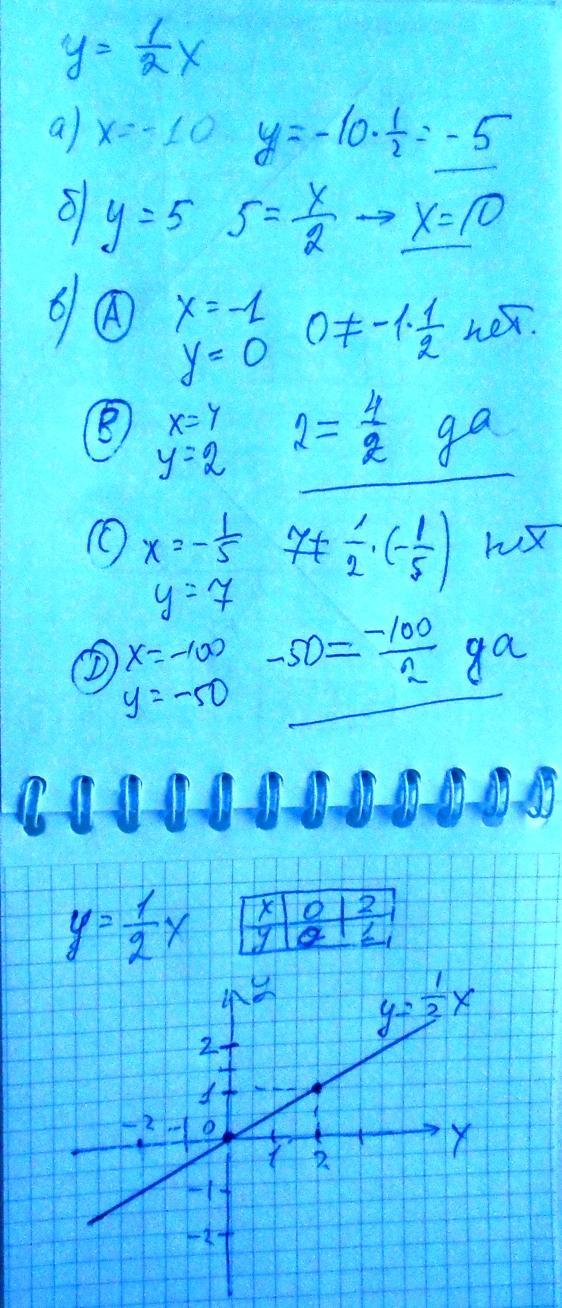 y = 1/2 x
а) x = -10 y = -10 · 1/2 = -5
б) y = 5 5 = x/2 → x = 10
в) A x = -1 0 ≠ -1 · 1/2 нет.
y = 0
B x = 4 2 = 4/2 да
y = 2
C x = -1/5 7 ≠ 1/2 · (-1/5) нет
y = 7
D x = -100 -50 = -100/2 да
y = -50
y = 1/2 x
x 0 2
y 0 1
y
y = 1/2 x
2
1
-2 -1 0 1 2 x
-1
-2